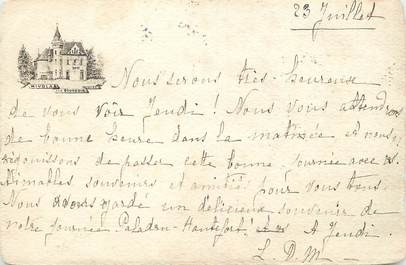 23 Juillet
NIVOLAS
Nous serons très heureuse
de vous voir Jeudi! Nous vous attendrons
de bonne heure dans la matinée et nous
réjouissons de passer cette bonne journée avec vs.
Aimables souvenirs et amitiés pour vous tous.
Nous avons gardé un délicieux souvenir de
notre journée Paladru - Hautefort. A Jeudi.
L. D. M.